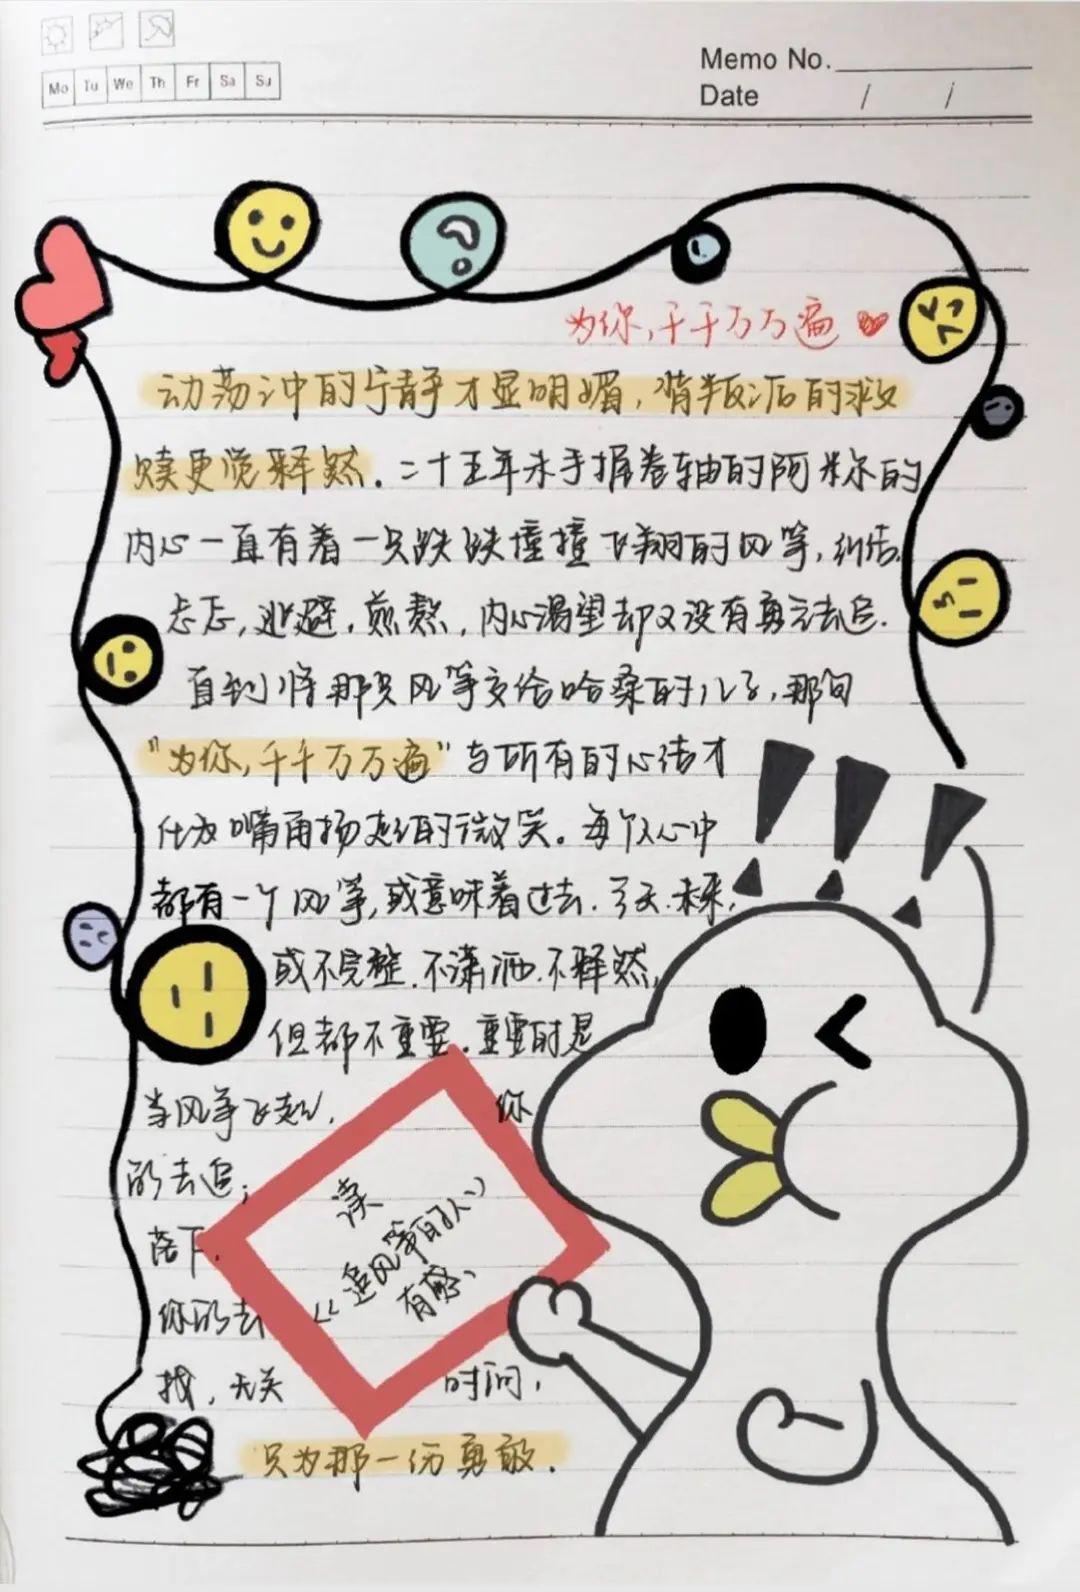 Memo No.
Mo Tu We Th Fr Sa Su
Date / /
为你，千千万万遍
动荡中的宁静才显明媚，背叛后的救
赎更觉释然。二十五年未手握卷轴的阿米尔的
内心一直有着一只跌跌撞撞飞翔的风筝，纠结，
忐忑，逃避，煎熬，内心渴望却又没有勇气去追.
直到将那只风筝交给哈桑的儿子，那句
"为你，千千万万遍"与所有的心结才
化为嘴角扬起的微笑。每个人心中
都有一个风筝，或意味着过去.今天.未来，
或不完整.不潇洒.不释然，
但都不重要.重要的是
当风筝飞起， 你
的去追；
落下.
你的去
找，无关 时间，
只为那一份勇敢.
读
《追风筝的人》
有感